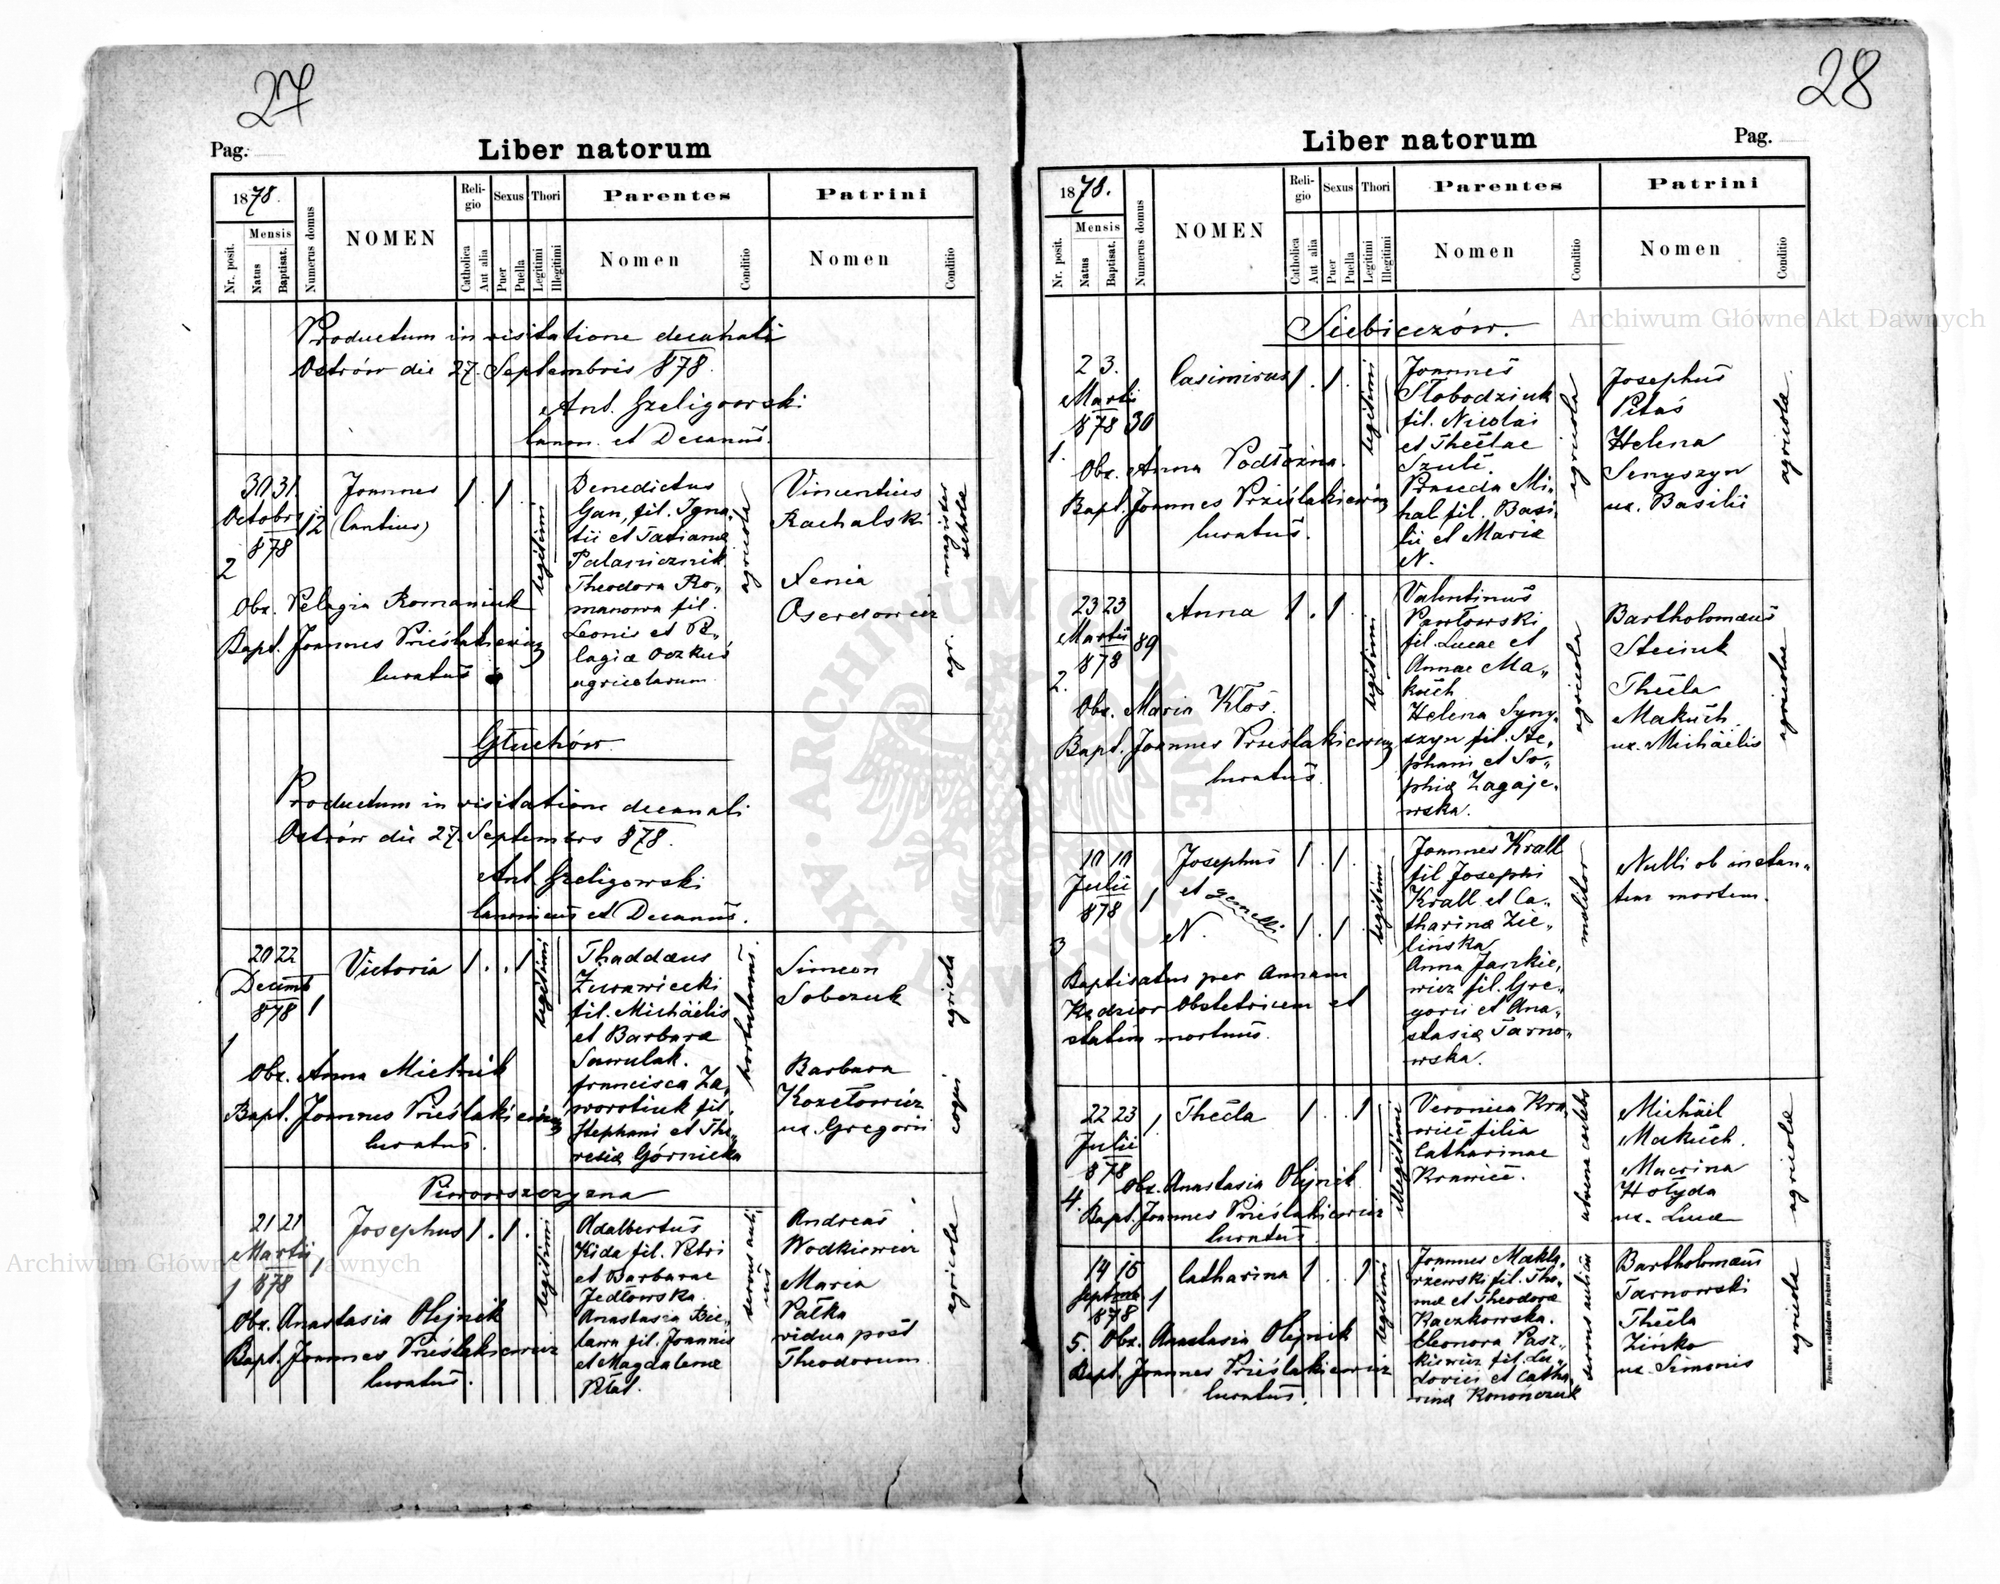 27
Pag.
Liber natorum
1878.
Mensis
Nr. posit.
Natus
Baptisat.
Numerus domus
NOMEN
Reli-
gio
Catholica
Aut alia
Sexus
Puer
Puella
Thori
Legitimi
Illegitimi
Parentes
Nomen
Conditio
Patrini
Nomen
Conditio
Productum in visitatione decanali
Ostrów die 27. Septembris 878.
Ant. Szeligowski
Canon. et Decanus.
30 31
Octobr
878
12
2
Joannes
(Cantius)
1 . 1 .
legitimi
Benedictus
Gan, fil. Igna-
tii et Tatianæ
Palamicznik.
Theodora Ro-
manowa fil.
Leonis et Pe-
lagiæ Oczkus
agricolarum
agricola
Vincentius
Rachalski
Xenia
Oserdowicz
magister
scholæ
agr.
Obs. Pelagia Romaniuk
Bapt. Joannes Prieślakiewicz
Curatus
Głuchów.
Productum in visitatione decanali
Ostrów die 27. Septembrs 878.
Ant. Szeligowski
Canonicus et Decanus.
20 22
Decemb
878
1
1
Victoria
1 . . 1
legitimi
Thaddæus
Żurawiecki
fil. Michäelis
et Barbaræ
Sawulak.
Francisca Za-
worotiuk fil.
Stephani et The-
resiæ Górnicka
hortulanus.
Simeon
Sobczuk
Barbara
Kozełowicz
ux. Gregorii
agricola
Obs. Anna Mielnik
Bapt. Joannes Prieślakiewicz
Curatus.
Piwowszczyzna
21 21
Martii
878
1
1
Josephus
1 . 1 .
legitimi
Adalbertus
Kida fil. Petri
et Barbarae
Jedłowska.
Anastasia Bie-
lawa fil. Joannis
et Magdalenæ
servus auli-
cus
Andreas
Wodkiewicz
Maria
Pałka
vidua post
Theodorum
agricola
Obs. Anastasia Olejnik
Bapt. Joannes Prieślakiewicz
Curatus.
28
Liber natorum
Pag.
1878.
Mensis
Nr. posit.
Natus
Baptisat.
Numerus domus
NOMEN
Reli-
gio
Catholica
Aut alia
Sexus
Puer
Puella
Thori
Legitimi
Illegitimi
Parentes
Nomen
Conditio
Patrini
Nomen
Conditio
Siebieczów.
2 3.
Martii
878
30
1.
Casimirus
1 . 1 .
legitimi
Joannes
Słobodziuk
fil. Nicolai
et Theclae
Szulc.
Praxeda Mi-
hal fil. Basi-
lii et Mariæ
N.
agricola
Josephus
Pitas
Helena
Senyszyn
ux. Basilii
agricolæ
Obs. Anna Podłozna.
Bapt. Joannes Prieślakiewicz
Curatus.
23 23
Martii
878
89
2.
Anna
1 . 1 .
legitimi
Valentinus
Pawłowski
fil. Lucae et
Annae Ma-
kuch
Helena Syny-
szyn fil. Ste-
phani et So-
phiæ Zagaje-
wska.
agricola
Bartholomæus
Steciuk
Thecla
Makuch
ux. Michäelis
agricolæ
Obs. Maria Kłos.
Bapt. Joannes Prieślakiewicz
Curatus.
10 10
Julii
878
1
3
Josephus
et gemelli
N.
1 . 1 .
1 . 1 .
legitimi
Joannes Krall
fil Josephi
Krall et Ca-
tharinæ Zie-
lińska
Anna Jarzkie-
wicz fil. Gre-
gorii et Ana-
stasiæ Tarno-
wska.
molitor
Nulli ob instan-
tem mortem.
Baptisatus per Annam
Kędzior obstetricem et
statim mortuus.
22 23
Julii
878
1
4.
Thecla
1 . . 1
illegitimi
Veronica Kra-
wiec filia
Catharinae
Krawiec.
Michäil
Makuch.
Macrina
Hołyda
ux. Lucæ
agricolæ
Obs. Anastasia Olejnik
Bapt. Joannes Prieślakiewicz
Curatus.
14 15
Septemb
878
1
5.
Catharina
1 . . 1
legitimi
Joannes Makla-
rzewski fil. Tho-
mæ et Theodoræ
Kaczkowska.
Eleonora Pasz-
kiewicz fil. Lu-
dovici et Catha-
rinæ Konończuk
servus aulicus
Bartholomæus
Tarnowski
Thecla
Zińko
ux. Simonis
agricola
Obs. Anastasia Olejnik
Bapt. Joannes Prieślakiewicz
Curatus.
Archiwum Główne Akt Dawnych
Archiwum Główne Akt Dawnych
ARCHIWUM GŁÓWNE AKT DAWNYCH